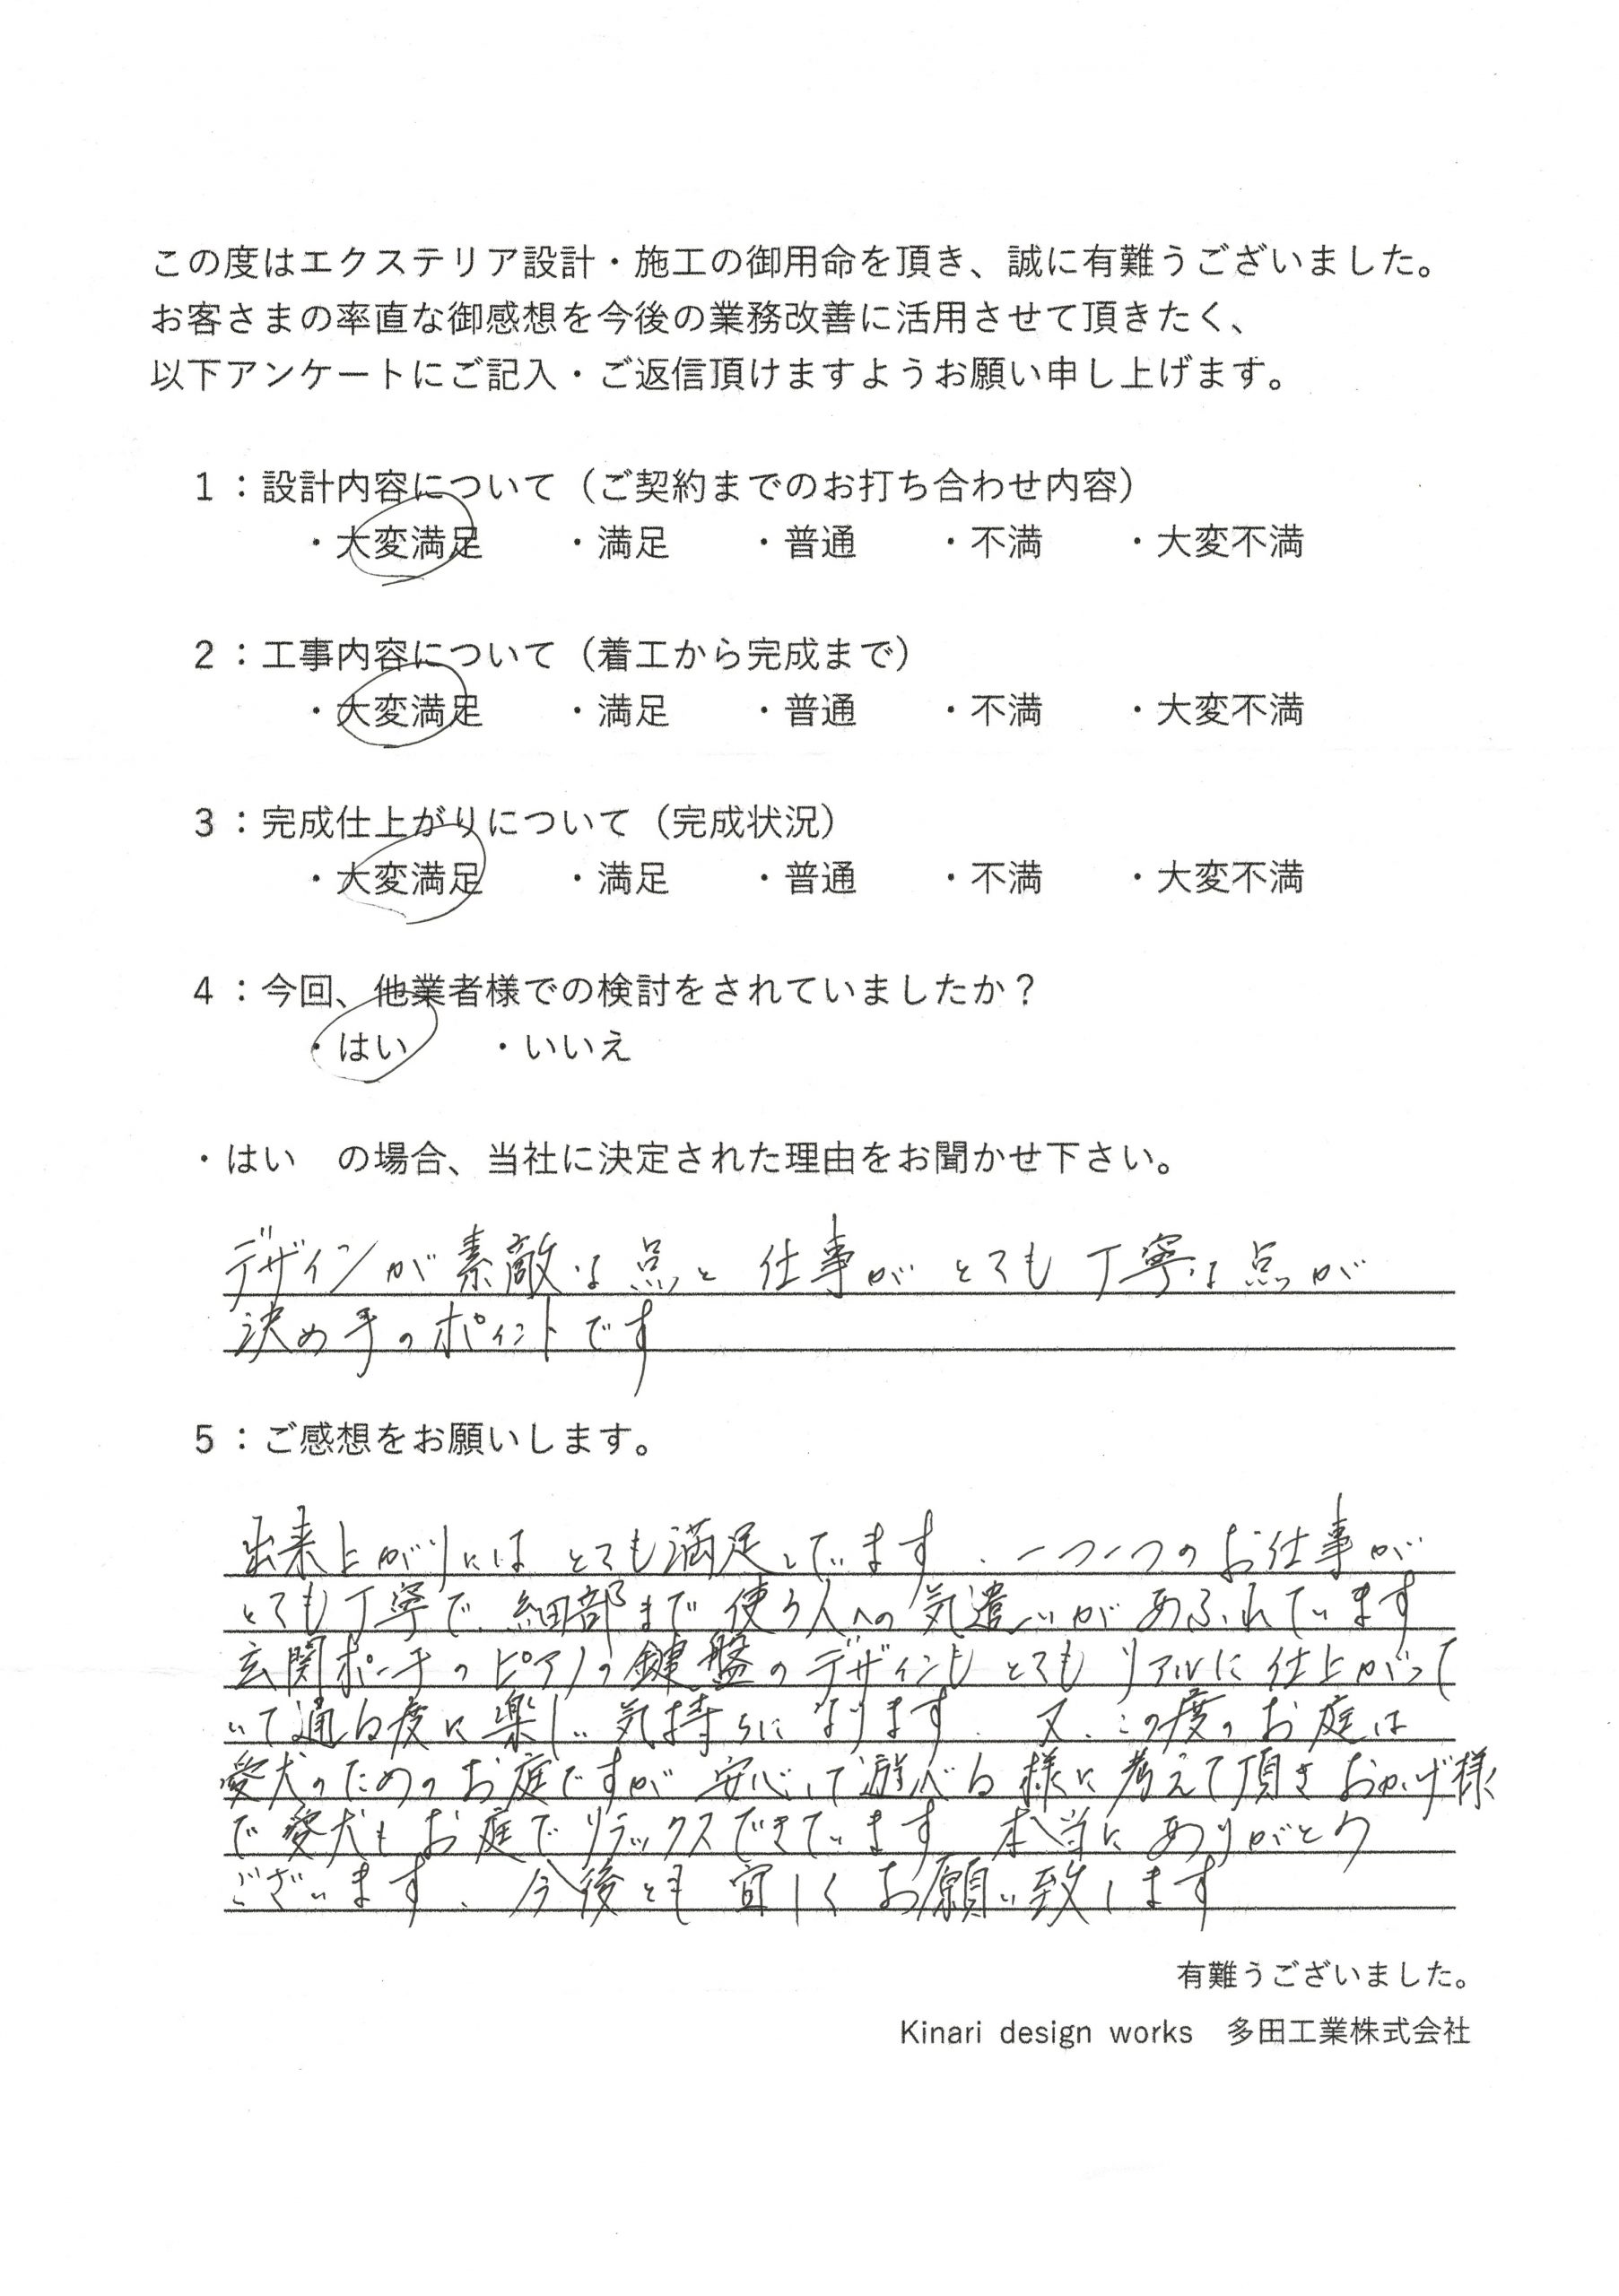 この度はエクステリア設計・施工の御用命を頂き、誠に有難うございました。
お客さまの率直な御感想を今後の業務改善に活用させて頂きたく、
以下アンケートにご記入・ご返信頂けますようお願い申し上げます。
1：設計内容について（ご契約までのお打ち合わせ内容）
・大変満足　・満足　・普通　・不満　・大変不満
2：工事内容について（着工から完成まで）
・大変満足　・満足　・普通　・不満　・大変不満
3：完成仕上がりについて（完成状況）
・大変満足　・満足　・普通　・不満　・大変不満
4：今回、他業者様での検討をされていましたか？
・はい　・いいえ
・はい　の場合、当社に決定された理由をお聞かせ下さい。
デザインが素敵な点と 仕事が とても 丁寧な点が
決め手のポイントです
5：ご感想をお願いします。
出来上がりには とても満足しています、一つ一つの お仕事が
とても丁寧で、細部まで 使う人への 気遣いが あふれています
玄関ポーチの ピアノの 鍵盤の デザインも とても リアルに 仕上がって
いて通る度に 楽しい 気持ちに なります、又、この度の お庭は
愛犬のための お庭ですが 安心して遊べる 様に 考えて頂き おかげ様
で 愛犬も お庭で リラックスできています 本当に ありがとう
ございます、今後とも 宜しく お願い致します
有難うございました。
Kinari design works　多田工業株式会社